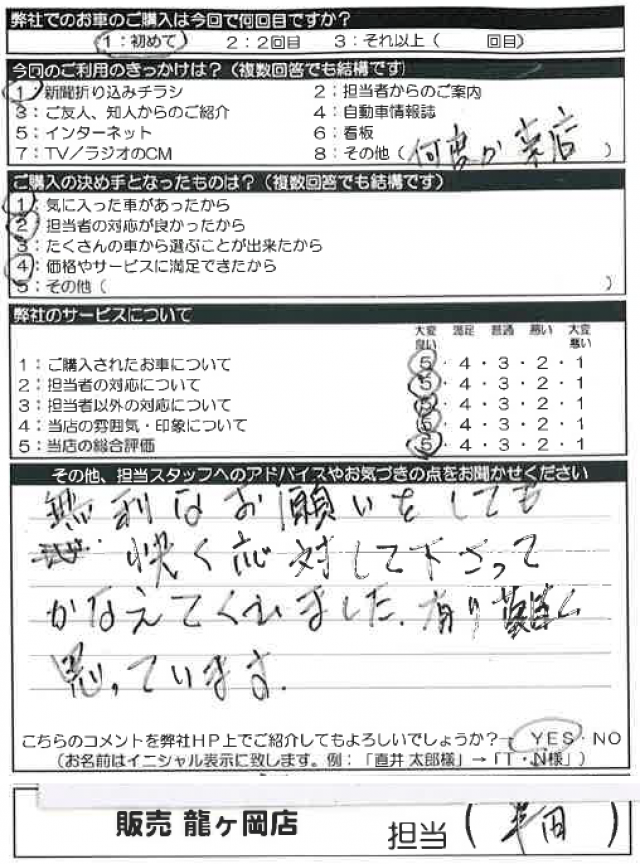 弊社でのお車のご購入は今回で何回目ですか？
1：初めて 2：2回目 3：それ以上（ 回目）
今回のご利用のきっかけは？（複数回答でも結構です）
1：新聞折り込みチラシ 2：担当者からのご案内
3：ご友人、知人からのご紹介 4：自動車情報誌
5：インターネット 6：看板
7：TV／ラジオのCM 8：その他（何度か来店）
ご購入の決め手となったものは？（複数回答でも結構です）
1：気に入った車があったから
2：担当者の対応が良かったから
3：たくさんの車から選ぶことが出来たから
4：価格やサービスに満足できたから
5：その他（ ）
弊社のサービスについて
大変良い 満足 普通 悪い 大変悪い
1：ご購入されたお車について 5・4・3・2・1
2：担当者の対応について 5・4・3・2・1
3：担当者以外の対応について 5・4・3・2・1
4：当店の雰囲気・印象について 5・4・3・2・1
5：当店の総合評価 5・4・3・2・1
その他、担当スタッフへのアドバイスやお気づきの点をお聞かせください
無利なお願いをしても
快く応対して下さって
かなえてくれました。有り難く
思っています。
こちらのコメントを弊社HP上でご紹介してもよろしいでしょうか？→ YES・NO
（お名前はイニシャル表示に致します。例：「直井 太郎様」→「T・N様」）
販売 龍ヶ岡店 担当（半田）